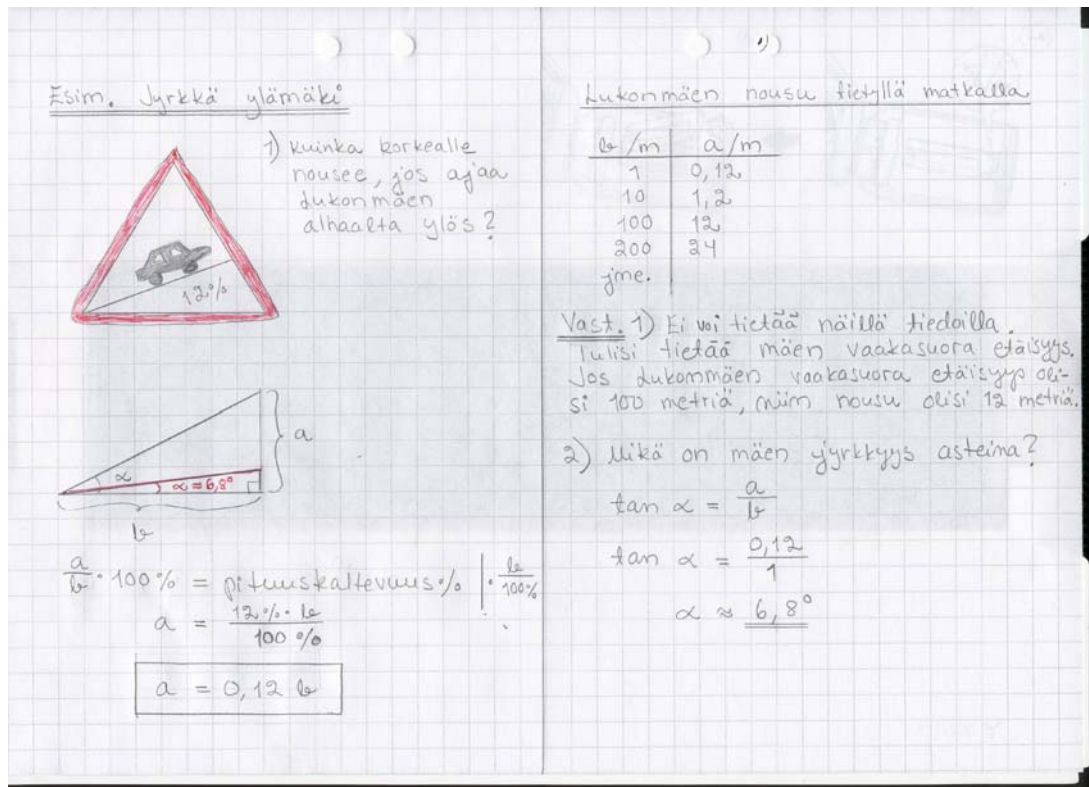 Esim. Jyrkkä ylämäki
1) Kuinka korkealle
nousee, jos ajaa
Lukonmäen
alhaalta ylös?
12%
a
α
α≈6,8°
b
a/b · 100% = pituuskaltevuus% | · b/100%
a = 12%·b / 100%
a = 0,12 b
Lukonmäen nousu tietyllä matkalla
b/m a/m
1 0,12
10 1,2
100 12
200 24
jne.
Vast. 1) Ei voi tietää näillä tiedoilla.
Tulisi tietää mäen vaakasuora etäisyys.
Jos Lukonmäen vaakasuora etäisyys oli-
si 100 metriä, niin nousu olisi 12 metriä.
2) Mikä on mäen jyrkkyys asteina?
tan α = a/b
tan α = 0,12/1
α ≈ 6,8°